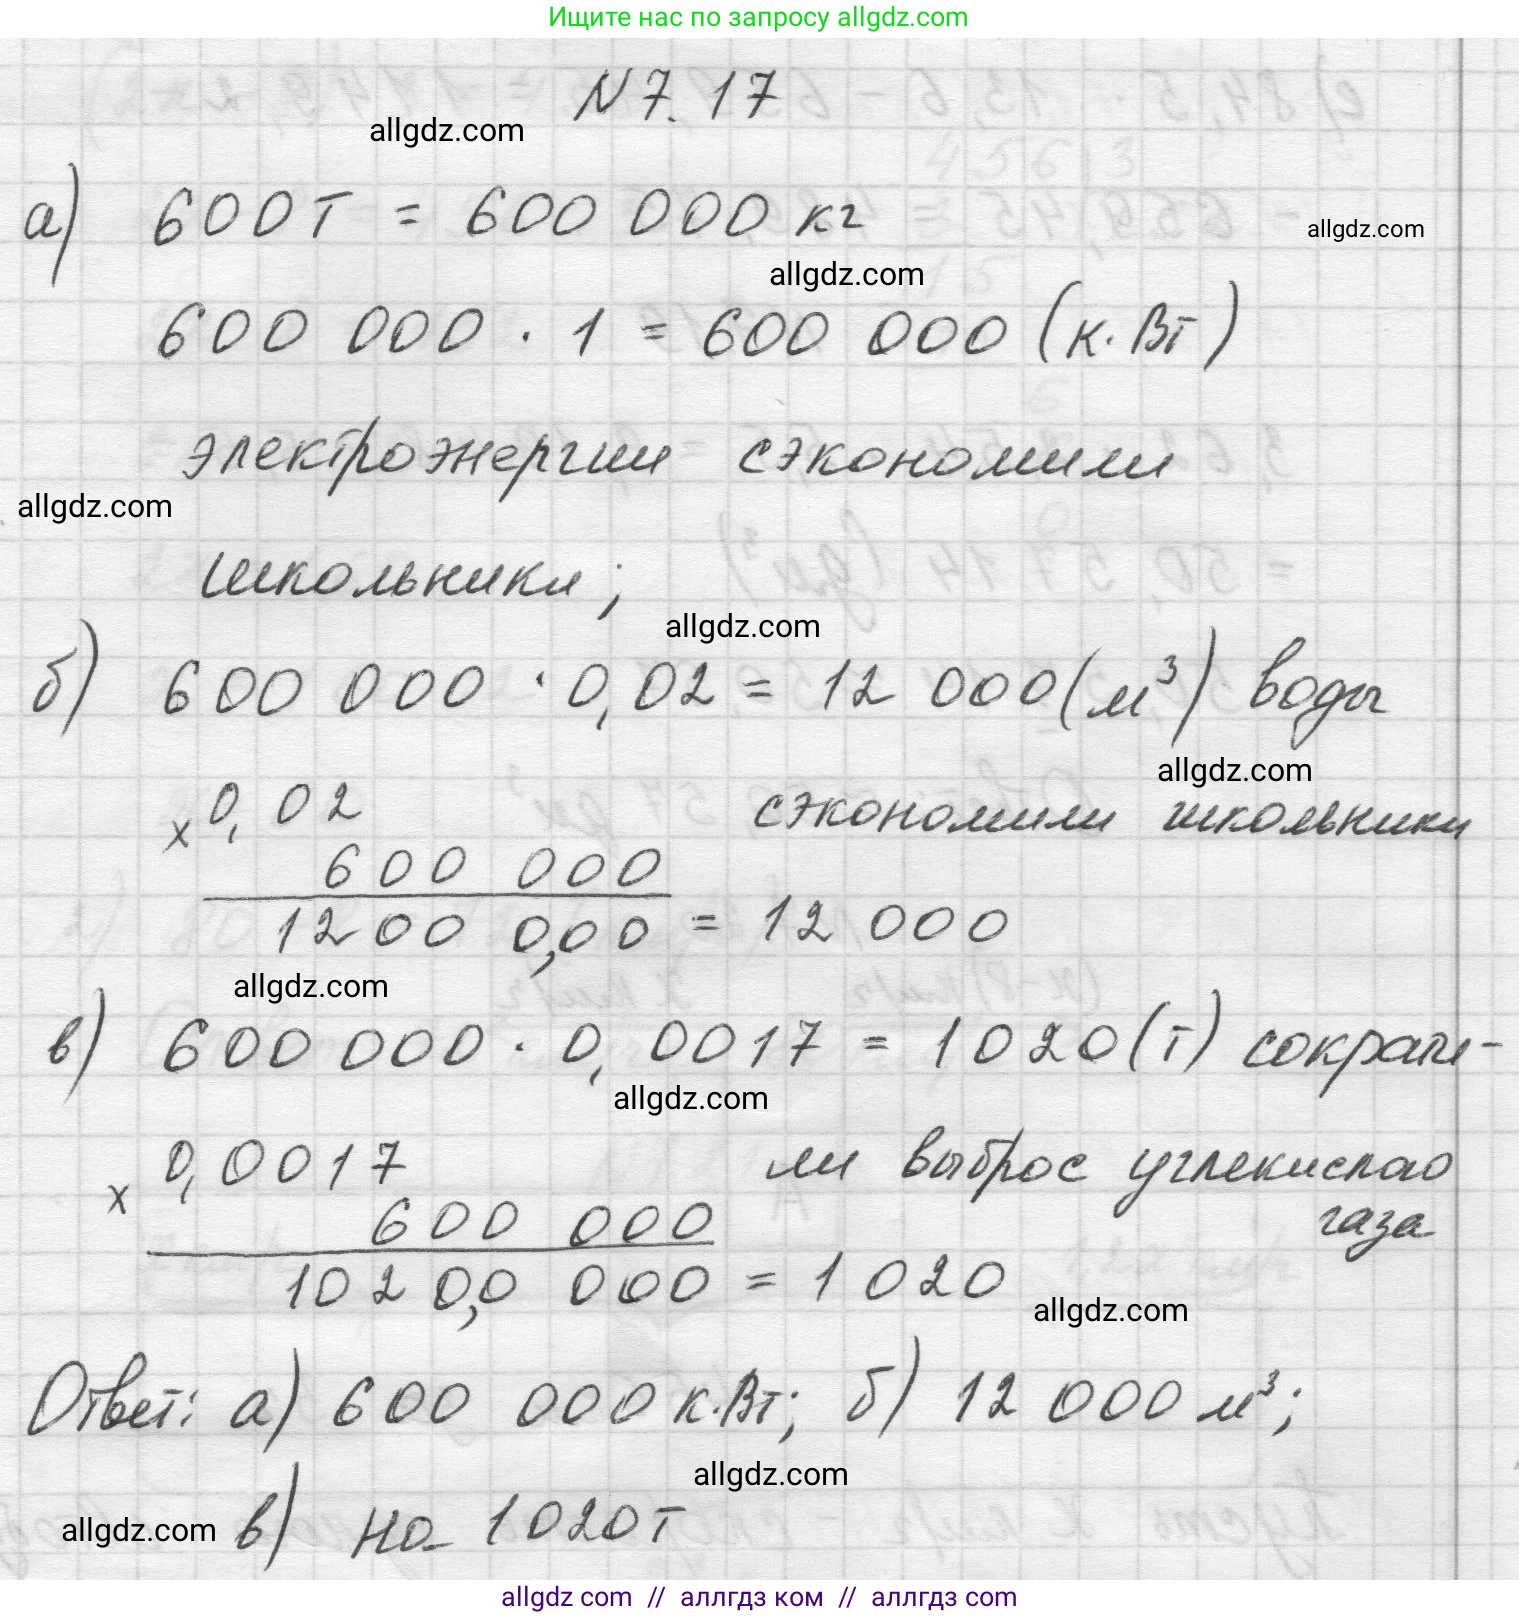 Ищите нас по запросу allgdz.com
N 7.17
allgdz.com
а) 600 т = 600 000 кг
allgdz.com
allgdz.com
600 000 · 1 = 600 000 (к.Вт)
электроэнергии сэкономили
allgdz.com
школьники;
allgdz.com
б) 600 000 · 0,02 = 12 000 (м³) воды
allgdz.com
x 0,02 сэкономили школьники
600 000
1200 0,00 = 12 000
allgdz.com
в) 600 000 · 0,0017 = 1020 (т) сократи-
allgdz.com
x 0,0017 ли выброс углекислого
600 000 газа
1020,0 000 = 1 020
allgdz.com
Ответ: а) 600 000 к.Вт; б) 12 000 м³;
allgdz.com
allgdz.com в) на 1020 т
allgdz com // аллгдз ком // аллгдз com